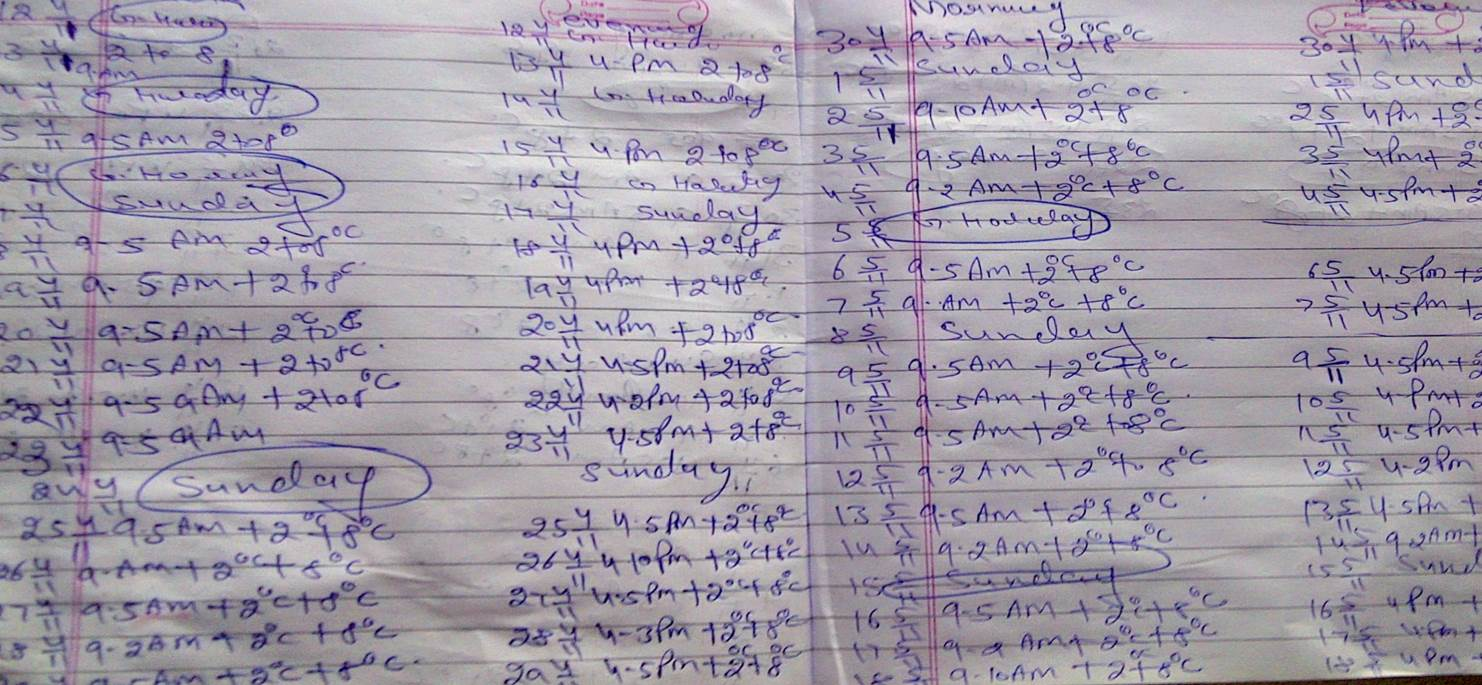 12 4/11 G. Holiday
13 4/11 9 Am 2 to 8
14 4/11 G. Holiday
15 4/11 9-5 Am 2 to 8°
16 4/11
17 4/11 Sunday
18 4/11 9-5 Am 2 to 8°C
19 4/11 9-5 Am + 2 to 8°C
20 4/11 9-5 Am + 2°C to 8
21 4/11 9-5 Am + 2 to 8°C.
22 4/11 9-5 Am + 2 to 8°C
23 4/11 9-5 Am
24 4/11 Sunday
25 4/11 9.5 Am + 2°C + 8°C
26 4/11 9. Am + 2°C + 8°C
27 4/11 9.5 Am + 2°C + 8°C
28 4/11 9.2 Am + 2°C + 8°C
5 Am + 2°C + 8°C.
evening
12 4/11
13 4/11 4-Pm 2 to 8°C
14 4/11
15 4/11 4-Pm 2 to 8°C
16 4/11
17 4/11 Sunday
18 4/11 4 Pm + 2° + 8°C
19 4/11 4 Pm + 2 + 8°C
20 4/11 4 Pm + 2 to 8°C
21 4/11 4-5 Pm + 2 to 8°C
22 4/11 4-2 Pm + 2 to 8°C
23 4/11 4-5 Pm + 2 + 8°C
Sunday
25 4/11 4.5 Pm + 2°C + 8°C
26 4/11 4.10 Pm + 2°C + 8°C
27 4/11 4.5 Pm + 2°C + 8°C
28 4/11 4-3 Pm + 2°C + 8°C
29 4/11 4.5 Pm + 2°C + 8°C
Morning
30 4/11 9-5 Am + 2°C + 8°C
1 5/11 Sunday
2 5/11 9-10 Am + 2°C + 8°C
3 5/11 9.5 Am + 2°C + 8°C
4 5/11 9.2 Am + 2°C + 8°C
5 5/11
6 5/11 9-5 Am + 2°C + 8°C
7 5/11 9. Am + 2°C + 8°C
8 5/11 Sunday
9 5/11 9.5 Am + 2°C + 8°C
10 5/11 9.5 Am + 2°C + 8°C.
11 5/11 9.5 Am + 2°C + 8°C
12 5/11 9.2 Am + 2°C + 8°C
13 5/11 9.5 Am + 2° + 8°C
14 5/11 9.2 Am + 2° + 8°C
15 5/11 Sunday
16 5/11 9.5 Am + 2°C + 8°C
17 5/11 9.2 Am + 2°C + 8°C
18 5/11 9.10 Am + 2°C + 8°C
30 4/11 4 Pm +
1 5/11 Sund
2 5/11 4 Pm + 2
3 5/11 4 Pm + 2°
4 5/11 4.5 Pm + 2
6 5/11 4.5 Pm + 2
7 5/11 4.5 Pm + 2
9 5/11 4.5 Pm + 2
10 5/11 4-Pm + 2
11 5/11 4.5 Pm +
12 5/11 4-2 Pm
13 5/11 4.5 Pm +
14 5/11 9.2 Am +
15 5/11 Sund
16 5/11 4 Pm +
17 5/11 4 Pm +
18 5/11 4 Pm